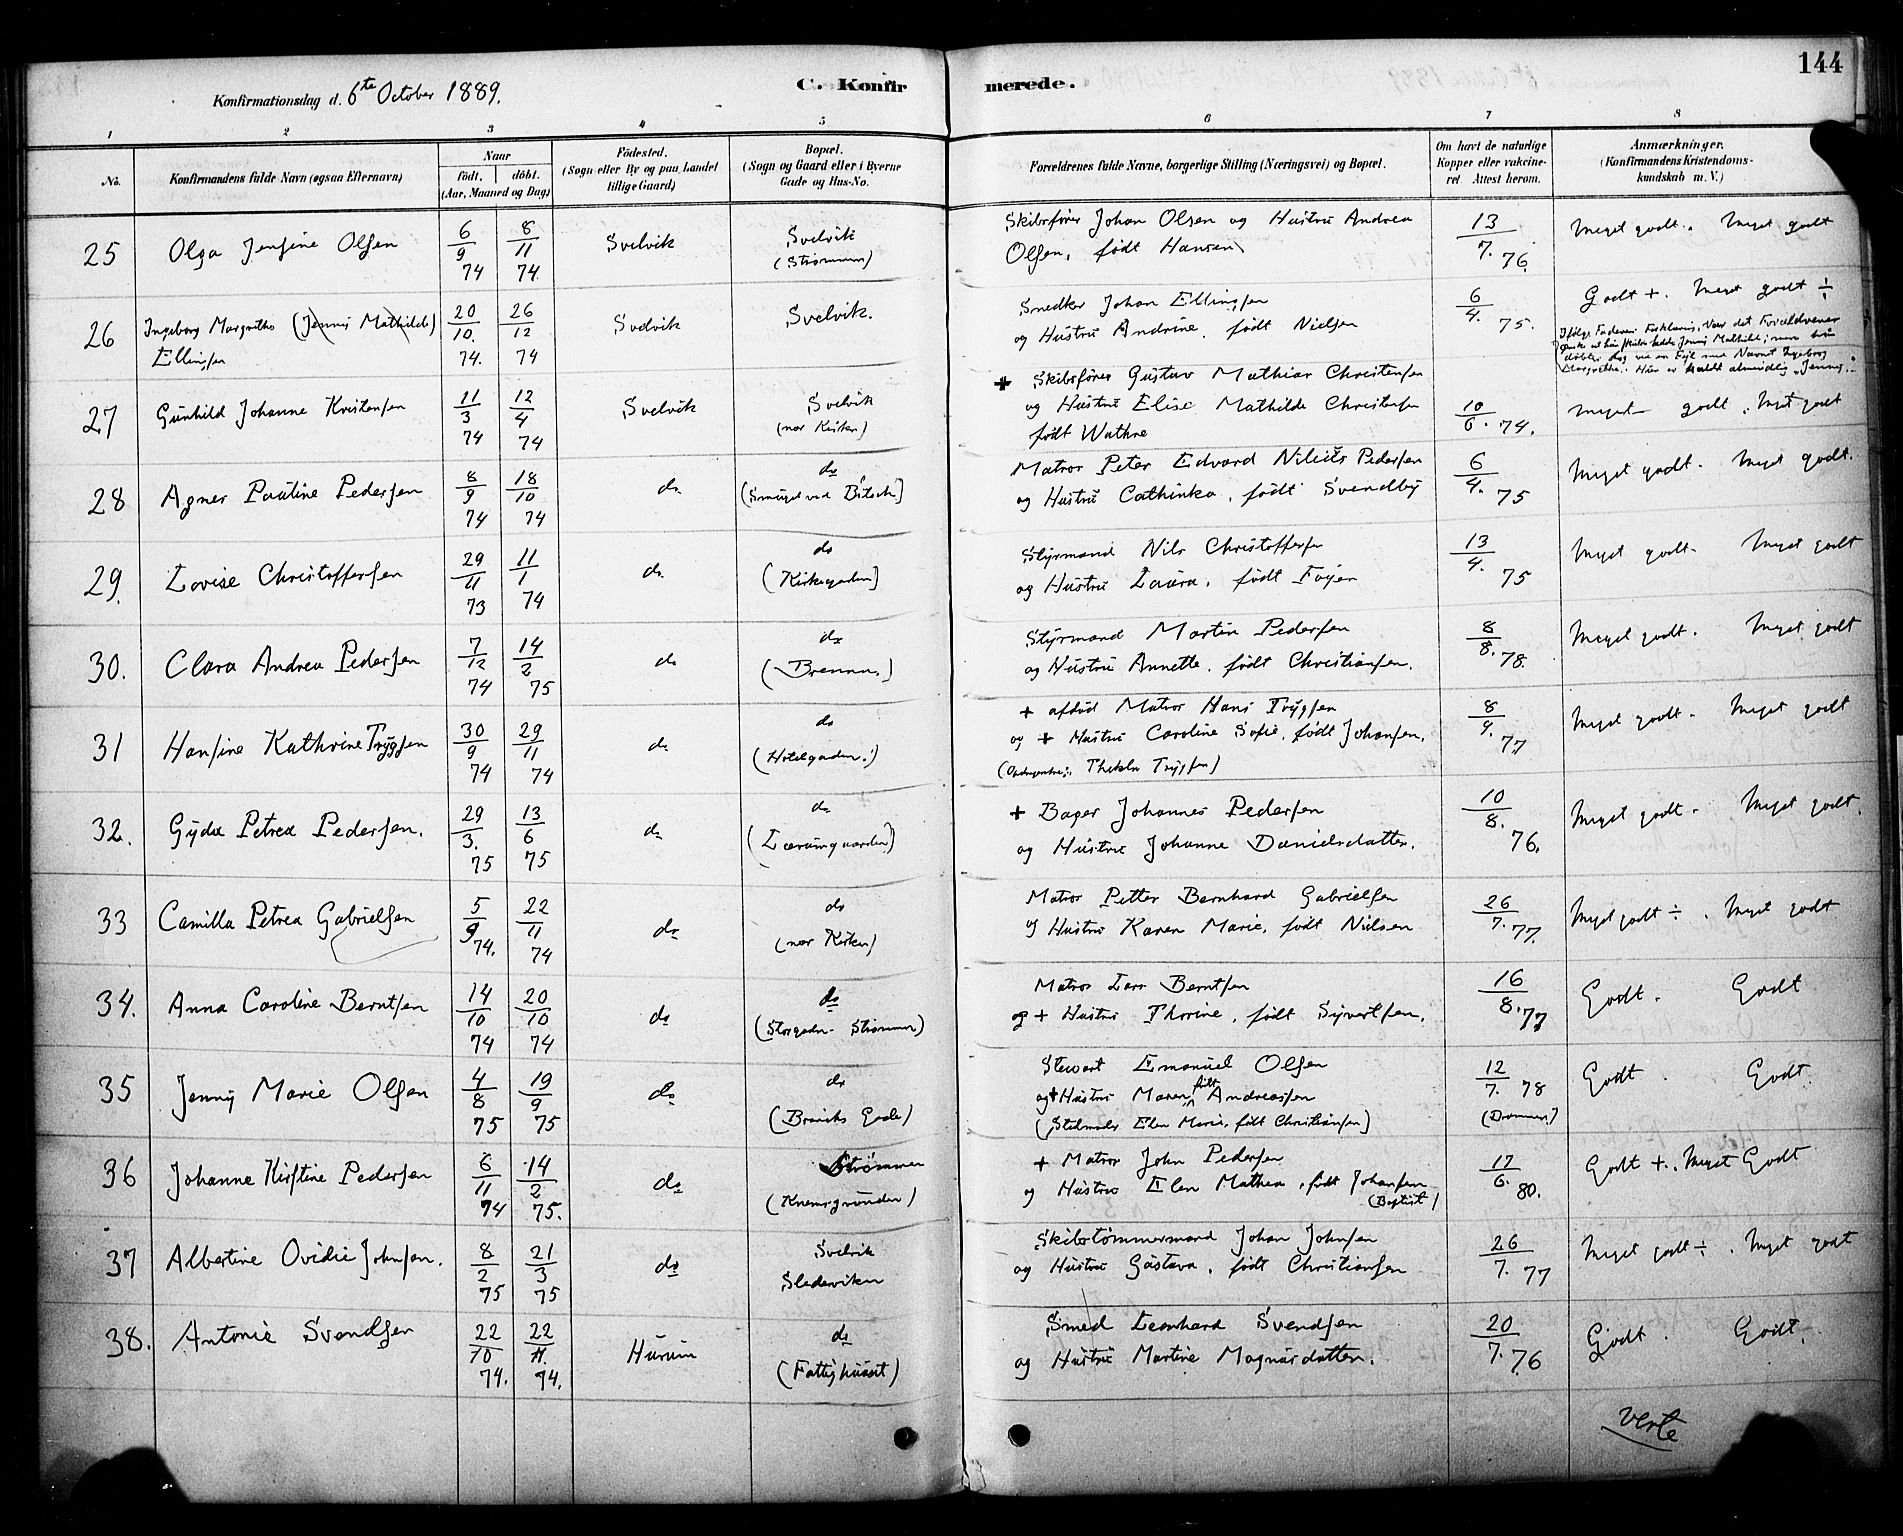 144
Konfirmationsdag d. 6te October 1889. C. Konfirmerede.
1 2 3 4 5 6 7 8
No. Konfirmandens fulde Navn (ogsaa Efternavn) Naar født. døbt. (Aar, Maaned og Dag) Fødested. (Sogn eller By og paa Landet tillige Gaard) Bopæl. (Sogn og Gaard eller i Byerne Gade og Hus-No. Forældrenes fulde Navne, borgerlige Stilling (Næringsvei) og Bopæl. Om havt de naturlige Kopper eller vakcineret Attest herom. Anmærkninger. (Konfirmandens Kristendomskundskab m. V.)
25 Olga Jensine Olsen 6/9 74 8/11 74 Svelvik Svelvik (Strømmen) Skibsfører Johan Olsen og Hustru Andrea
Olsen, født Hansen 13/7. 76. Meget godt. Meget godt
26 Ingeborg Margrethe (Jenny Mathilde) Ellingsen 20/10. 74. 26/12 74 Svelvik Svelvik. Snedker Johan Ellingsen
og Hustru Andrine, født Nielsen 6/4. 75. Godt +. Meget godt ÷
Ifølge Faderens Forklaring, var det Forældrenes
Ønske at hun skulde hedde Jenny Mathilde; men hun
døbtes dog ved en Feil med Navnet Ingeborg
Margrethe. Hun er kaldt almindelig "Jenny".
27 Gunhild Johanne Kristensen 11/3 74 12/4 74 Svelvik Svelvik (nær Kirken) + Skibsfører Gustav Mathias Christensen
og Hustru Elise Mathilde Christensen
født Wathne 10/6. 74. meget godt. Meget godt
28 Agnes Pauline Pedersen 8/9 74 18/10 74 do do (Smuget ved Bitsch) Matros Peter Edvard Pedersen
og Hustru Cathinka, født Svendby 6/4. 75 Meget godt. Meget godt.
29. Lovise Christoffersen 29/11 73 11/1 74 do do (Kirkegaden) Styrmand Nils Christoffersen
og Hustru Laura, født Foyen 13/4. 75 Meget godt. Meget godt
30. Clara Andrea Pedersen 7/12 74 14/2 75 do do (Brenna.) Styrmand Martin Pedersen
og Hustru Annette, født Christiansen. 8/8. 78. Meget godt. Meget godt
31 Hansine Kathrine Trygsen 30/9 74 29/11 74 do do (Hotelgaden.) + afdød Matros Hans Trygsen
og + Hustru Caroline Sofie, født Johansen.
Thekla Trygsen) 8/4. 77 Meget godt. Meget godt
32. Gyda Petrea Pedersen. 29/3. 75 13/6 75 do do + Bager Johannes Pedersen
og Hustru Johanne Danielsdatter. 10/8. 76. Meget godt. Meget godt.
33 Camilla Petrea Gabrielsen 5/9 74. 22/11 74 do do (nær Kirken) Matros Petter Bernhard Gabrielsen
og Hustru Karen Marie, født Nielsen 26/7. 77. Meget godt ÷. Meget godt
34. Anna Caroline Berntsen 14/10 74 20/10 74 do do (Storgaden Strømmen) Matros Lars Berntsen
og + Hustru Thorine, født Syvertsen. 16/8. 77 Godt. Godt
35 Jenny Marie Olsen 4/8 75 19/9 75 do do Stewart Emanuel Olsen
og + Hustru Maren født Andreassen
(Stedmoder Elen Marie, født Christiansen) 12/7. 78 (Drammen) Godt. Godt
36 Johanne Kirstine Pedersen 6/11 74 14/2 75. do Strømmen + Matros John Pedersen
og Hustru Elen Mathea, født Johansen
(Baptist) 17/6. 80. Godt +. Meget Godt
37 Albertine Ovidie Johnsen. 8/2 75 21/3 75 do Svelvik Sledeviken Skibstømmermand Johan Johnsen
og Hustru Gustava, født Christiansen 26/7. 77 Meget godt ÷. Meget godt
38. Antonie Svendsen 22/10 74. 22/11. 74. Hurum do (Fattighuset) Smed Leonhard Svendsen
og Hustru Martine Magnusdatter. 20/7. 76 Godt. Godt.
verte